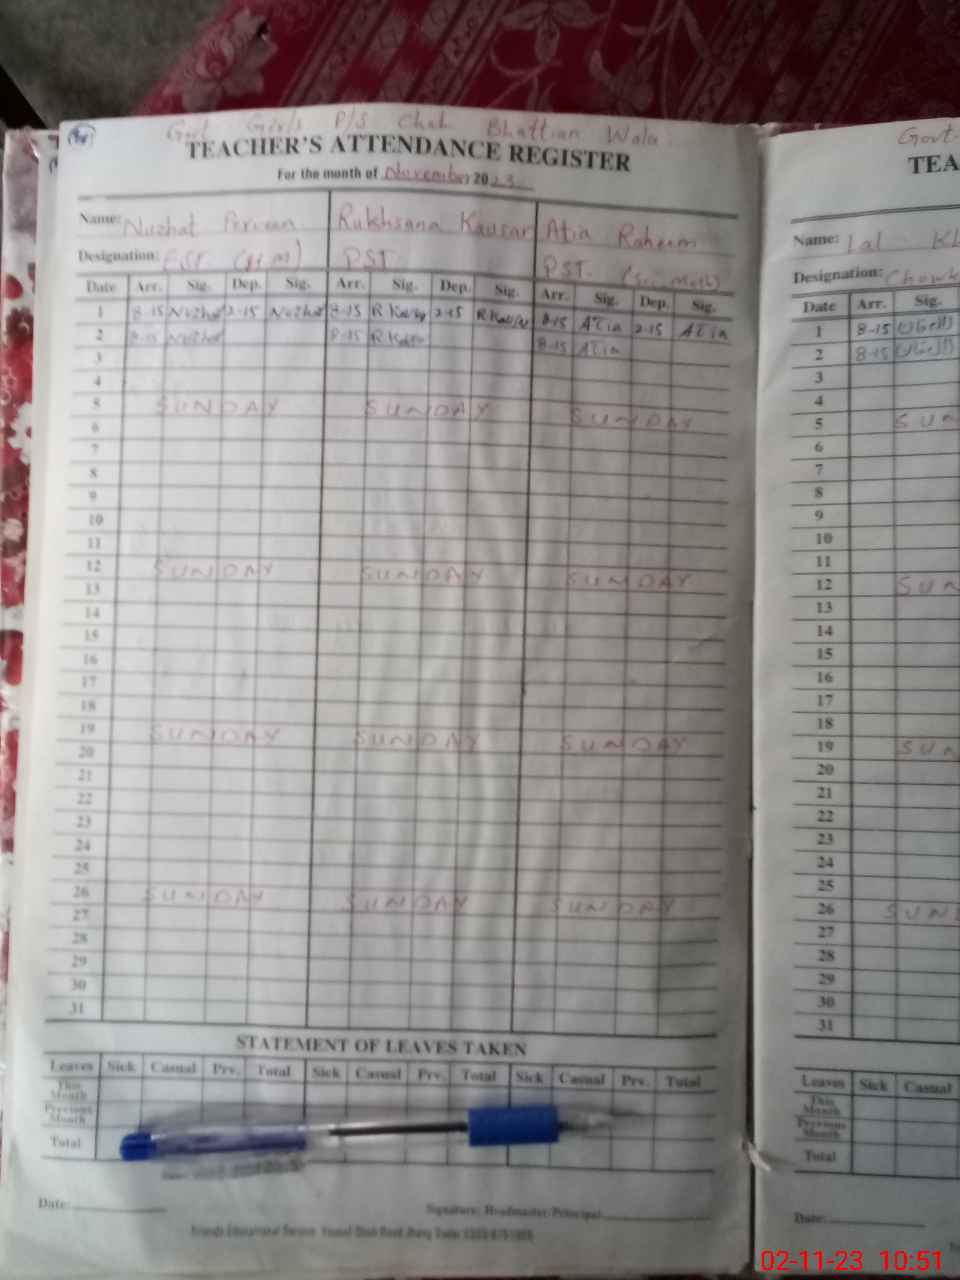 Govt Girls P/S Chah Bhattian Wala
TEACHER'S ATTENDANCE REGISTER
For the month of November 2023
Name: Nuzhat Perveen Rukhsana Kausar Atia Raheem
Designation: PST PST. (Sci. Math)
Date Arr. Sig. Dep. Sig. Arr. Sig. Dep. Sig. Arr. Sig. Dep. Sig.
1 8-15 Nuzhat 2-15 Nuzhat 8-15 2-15 8-15 Atia 2-15 Atia
2 8-15 Nuzhat 8-15 8-15 Atia
3
4
5 SUNDAY SUNDAY SUNDAY
6
7
8
9
10
11
12 SUNDAY SUNDAY SUNDAY
13
14
15
16
17
18
19 SUNDAY SUNDAY SUNDAY
20
21
22
23
24
25
26 SUNDAY SUNDAY SUNDAY
27
28
29
30
31
STATEMENT OF LEAVES TAKEN
Leaves Sick Casual Prv. Total Sick Casual Prv. Total Sick Casual Prv. Total
This Month
Previous Month
Total
Date: Signature: Headmaster/Principal
Govt-
TEA
Name: Lal Kh
Designation: Chowk
Date Arr. Sig.
1 8-15
2 8-15
3
4
5 SUN
6
7
8
9
10
11
12 SUN
13
14
15
16
17
18
19 SUN
20
21
22
23
24
25
26 SUN
27
28
29
30
31
Leaves Sick Casual
This Month
Previous Month
Total
Date:
02-11-23 10:51